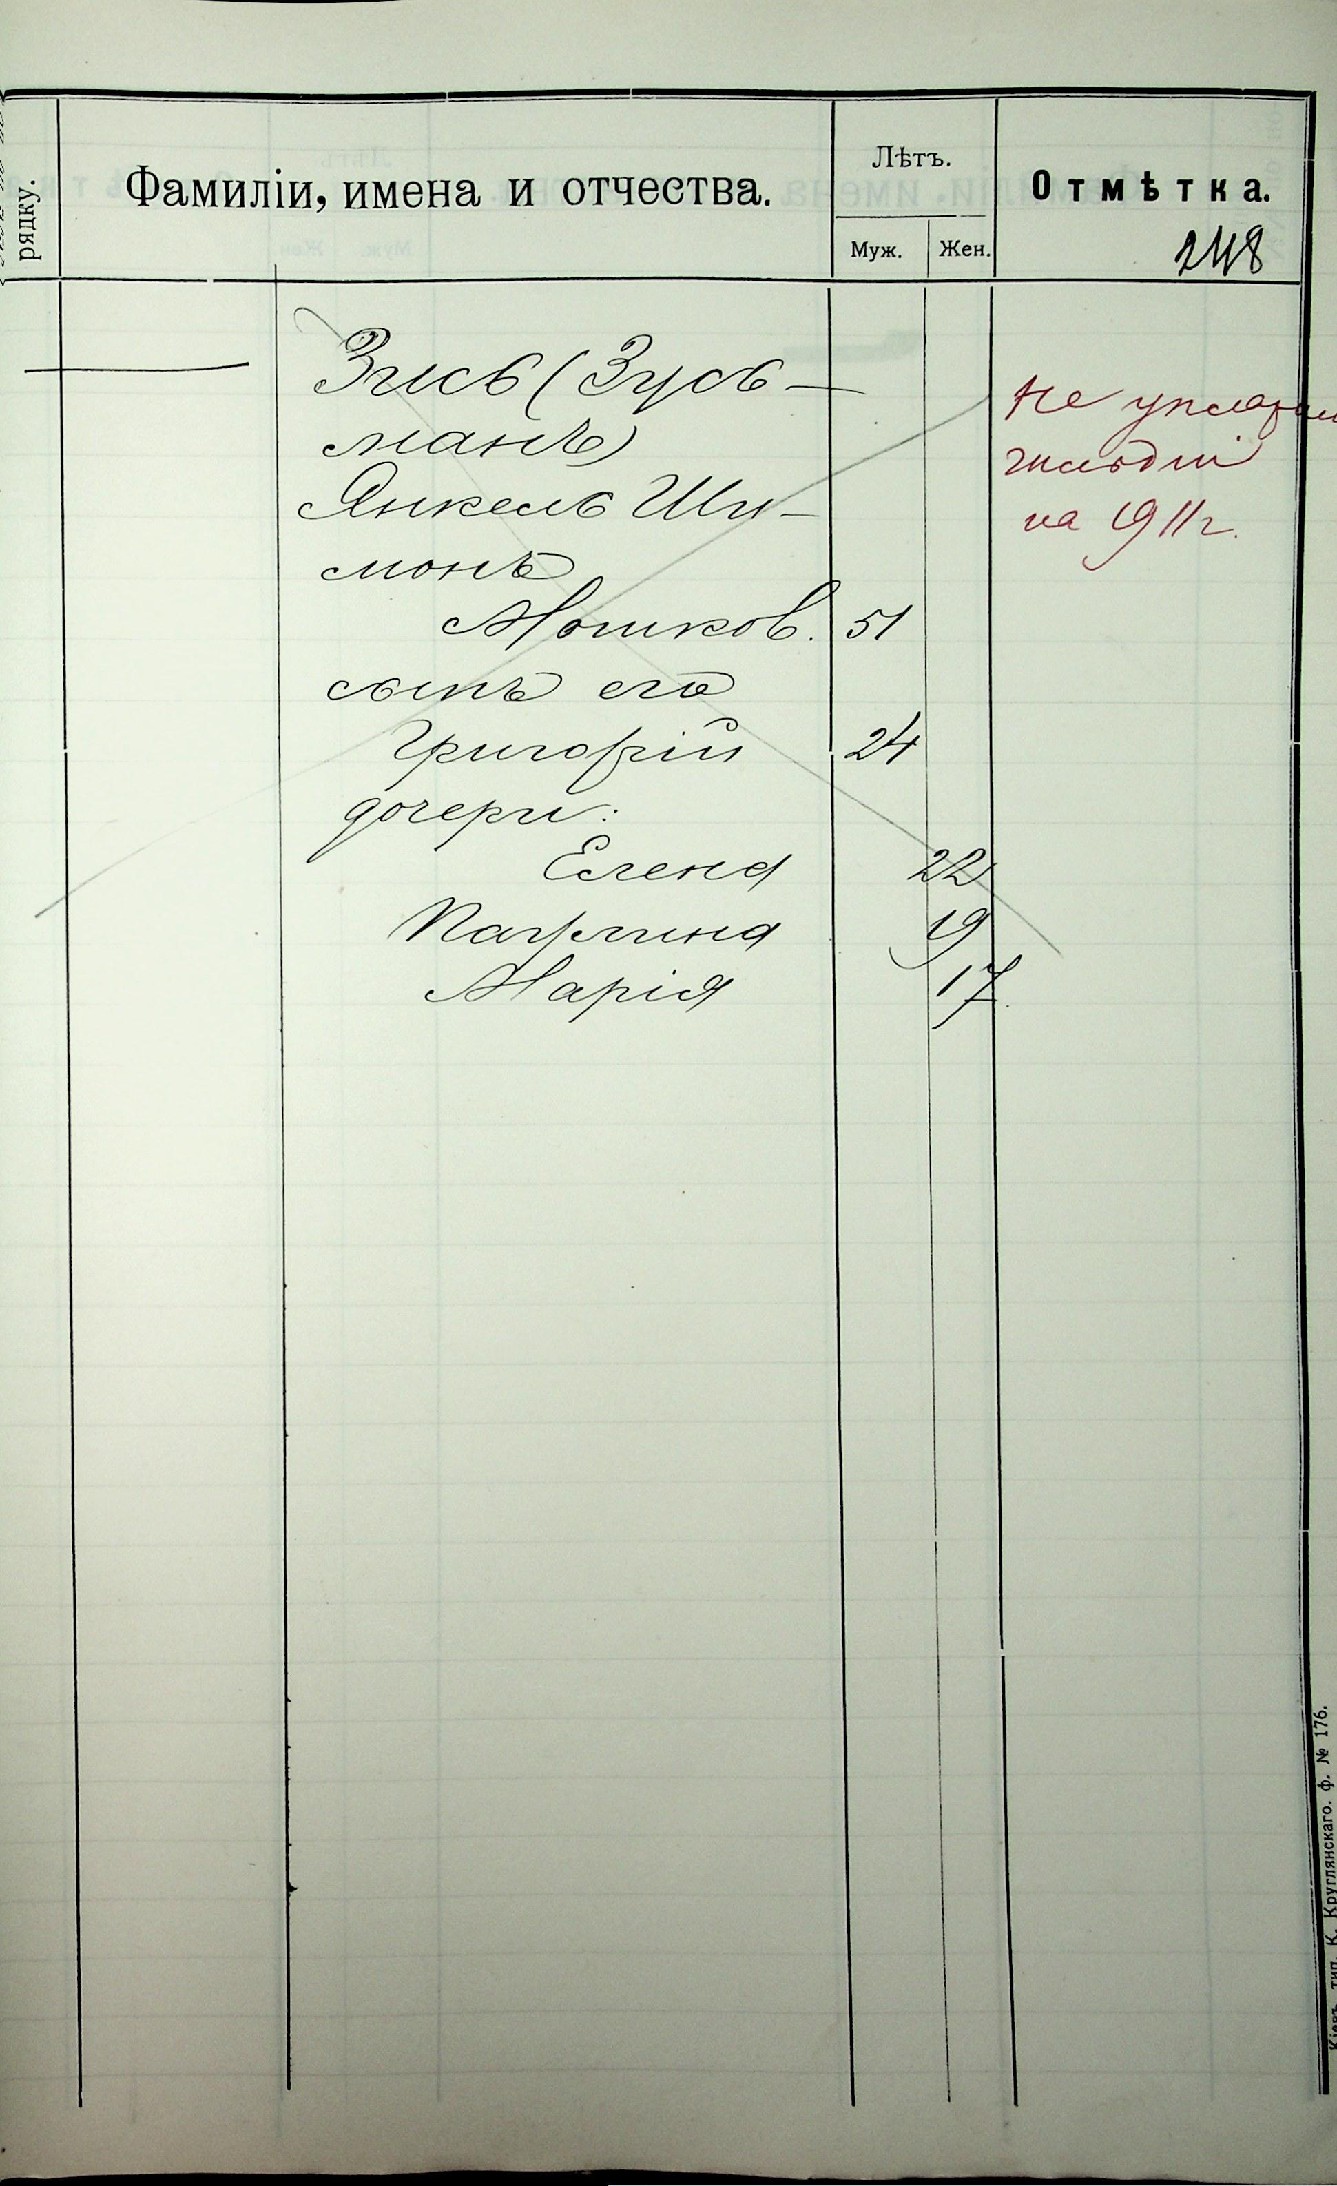 рядку.
Фамиліи, имена и отчества.
Лѣтъ.
Муж.
Жен.
Отмѣтка.
248
Зись (Зусь-
манъ)
Янкель Ши-
монъ
Мошков. 51
сынъ его
Григорій 24
дочери:
Елена 22
Паулина 19
Марія 17.
Не
гильдіи
на 1911 г.
Кіевъ, тип. К. Круглянскаго. ф. № 176.